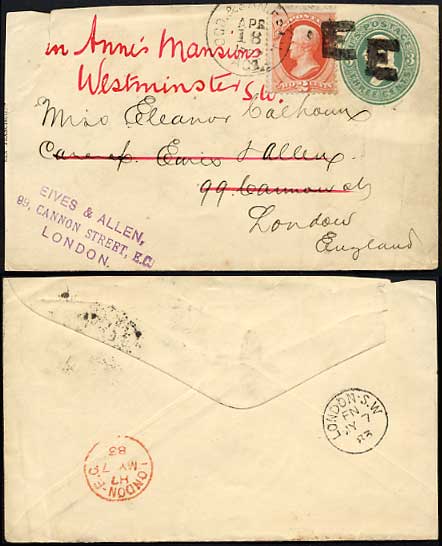 APR
18
E E
U.S. POSTAGE
THREE CENTS
3
in Anne's Mansions
Westminster
S.W.
Miss Eleanor Calhoun
Care of Eives & Allen
99 Cannon St
London
England
EIVES & ALLEN,
99, CANNON STREET, E.C.
LONDON.
LONDON·S.W
FN
MY 7
83
LONDON·E.C
H7
MY 7
83